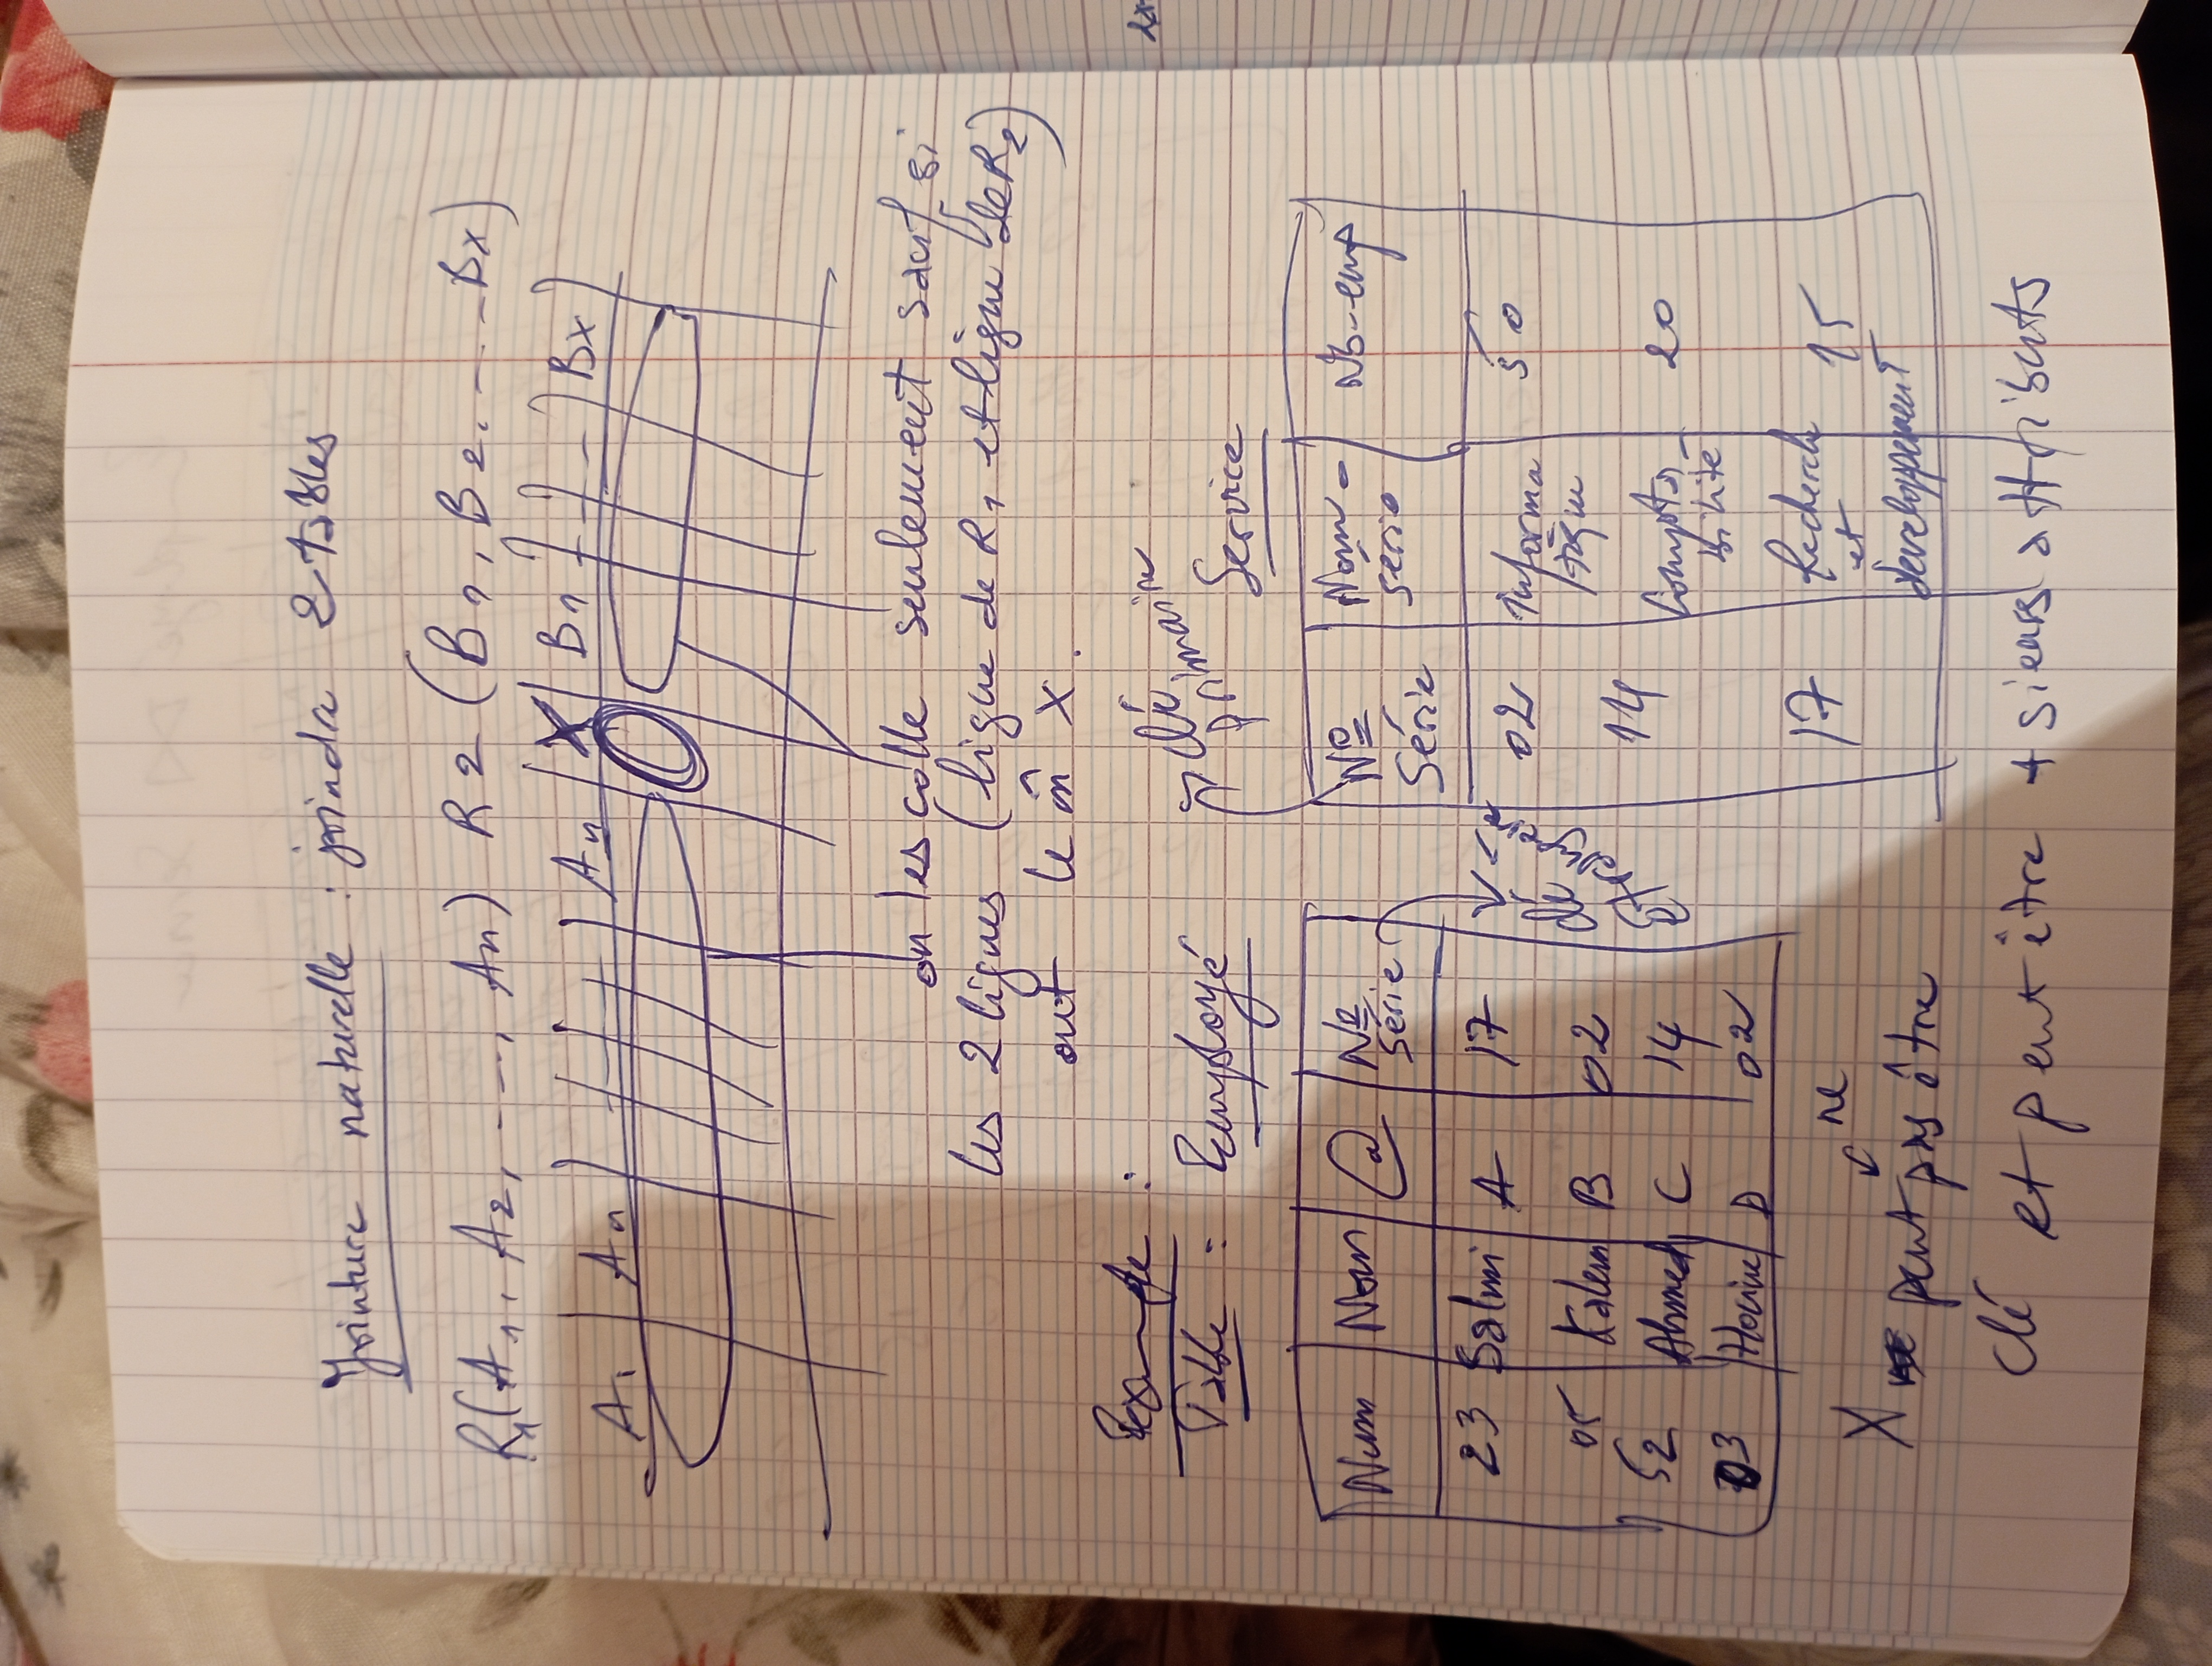 Jointure naturelle : joindre 2 tables
R1(A1, A2, ..., An) R2(B1, B2. ... Bx)
A1 An An X B1 Bx
on les colle seulement sauf si
les 2 lignes (ligne de R1 et ligne de R2)
ont le m̂ X.
Exemple :
Table : Employé Service
clé primaire
Num Nom @ N° série
23 Salmi A 17
05 Kalem B 02
52 Ahmed C 14
03 D 02
clé étrangère
N° Série Nom série Nb-emp
02 Informa tique 50
14 Compta- bilité 20
17 Recherch et developpement 15
ne
X peut pas être
clé et peut être +sieurs attributs